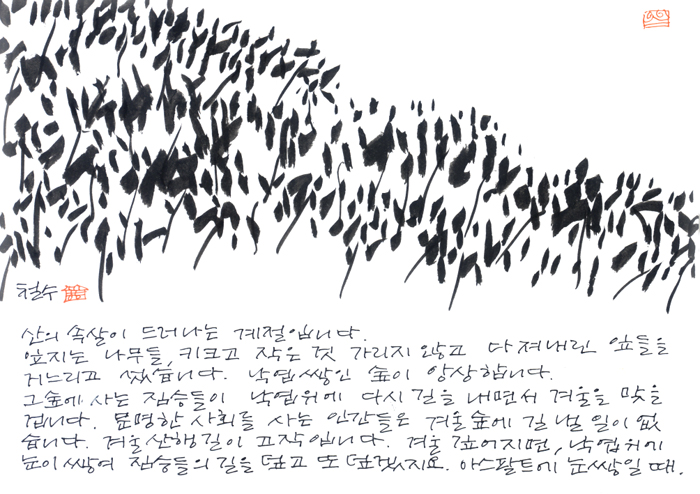 철수
산의 속살이 드러나는 계절입니다.
잎지는 나무들, 키크고 작은 것 가리지 않고 다 져내린 잎들을
거느리고 섰습니다. 낙엽쌓인 숲이 앙상합니다.
그숲에 사는 짐승들이 낙엽위에 다시 길을 내면서 겨울을 맞을
겁니다. 문명한 사회를 사는 인간들은 겨울숲에 길 낼 일이 없
습니다. 겨울산행길이 고작입니다. 겨울 깊어지면, 낙엽위에
눈이 쌓여 짐승들의 길을 덮고 또 덮겠지요. 아스팔트에 눈쌓일 때.